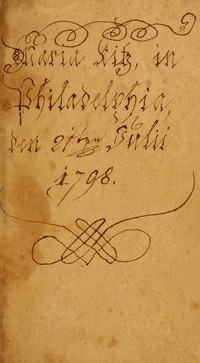 Maria Kitz, in
Philadelphia,
den 21ten Julii
1798.